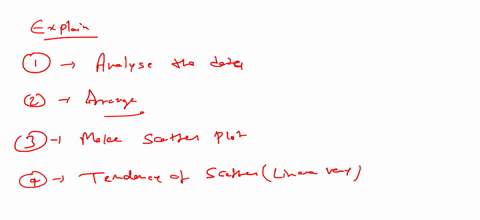 Explain
① → Analyse the data
② → Arrange
③ → Make Scatter plot
④ → Tendence of Scatter (Linear